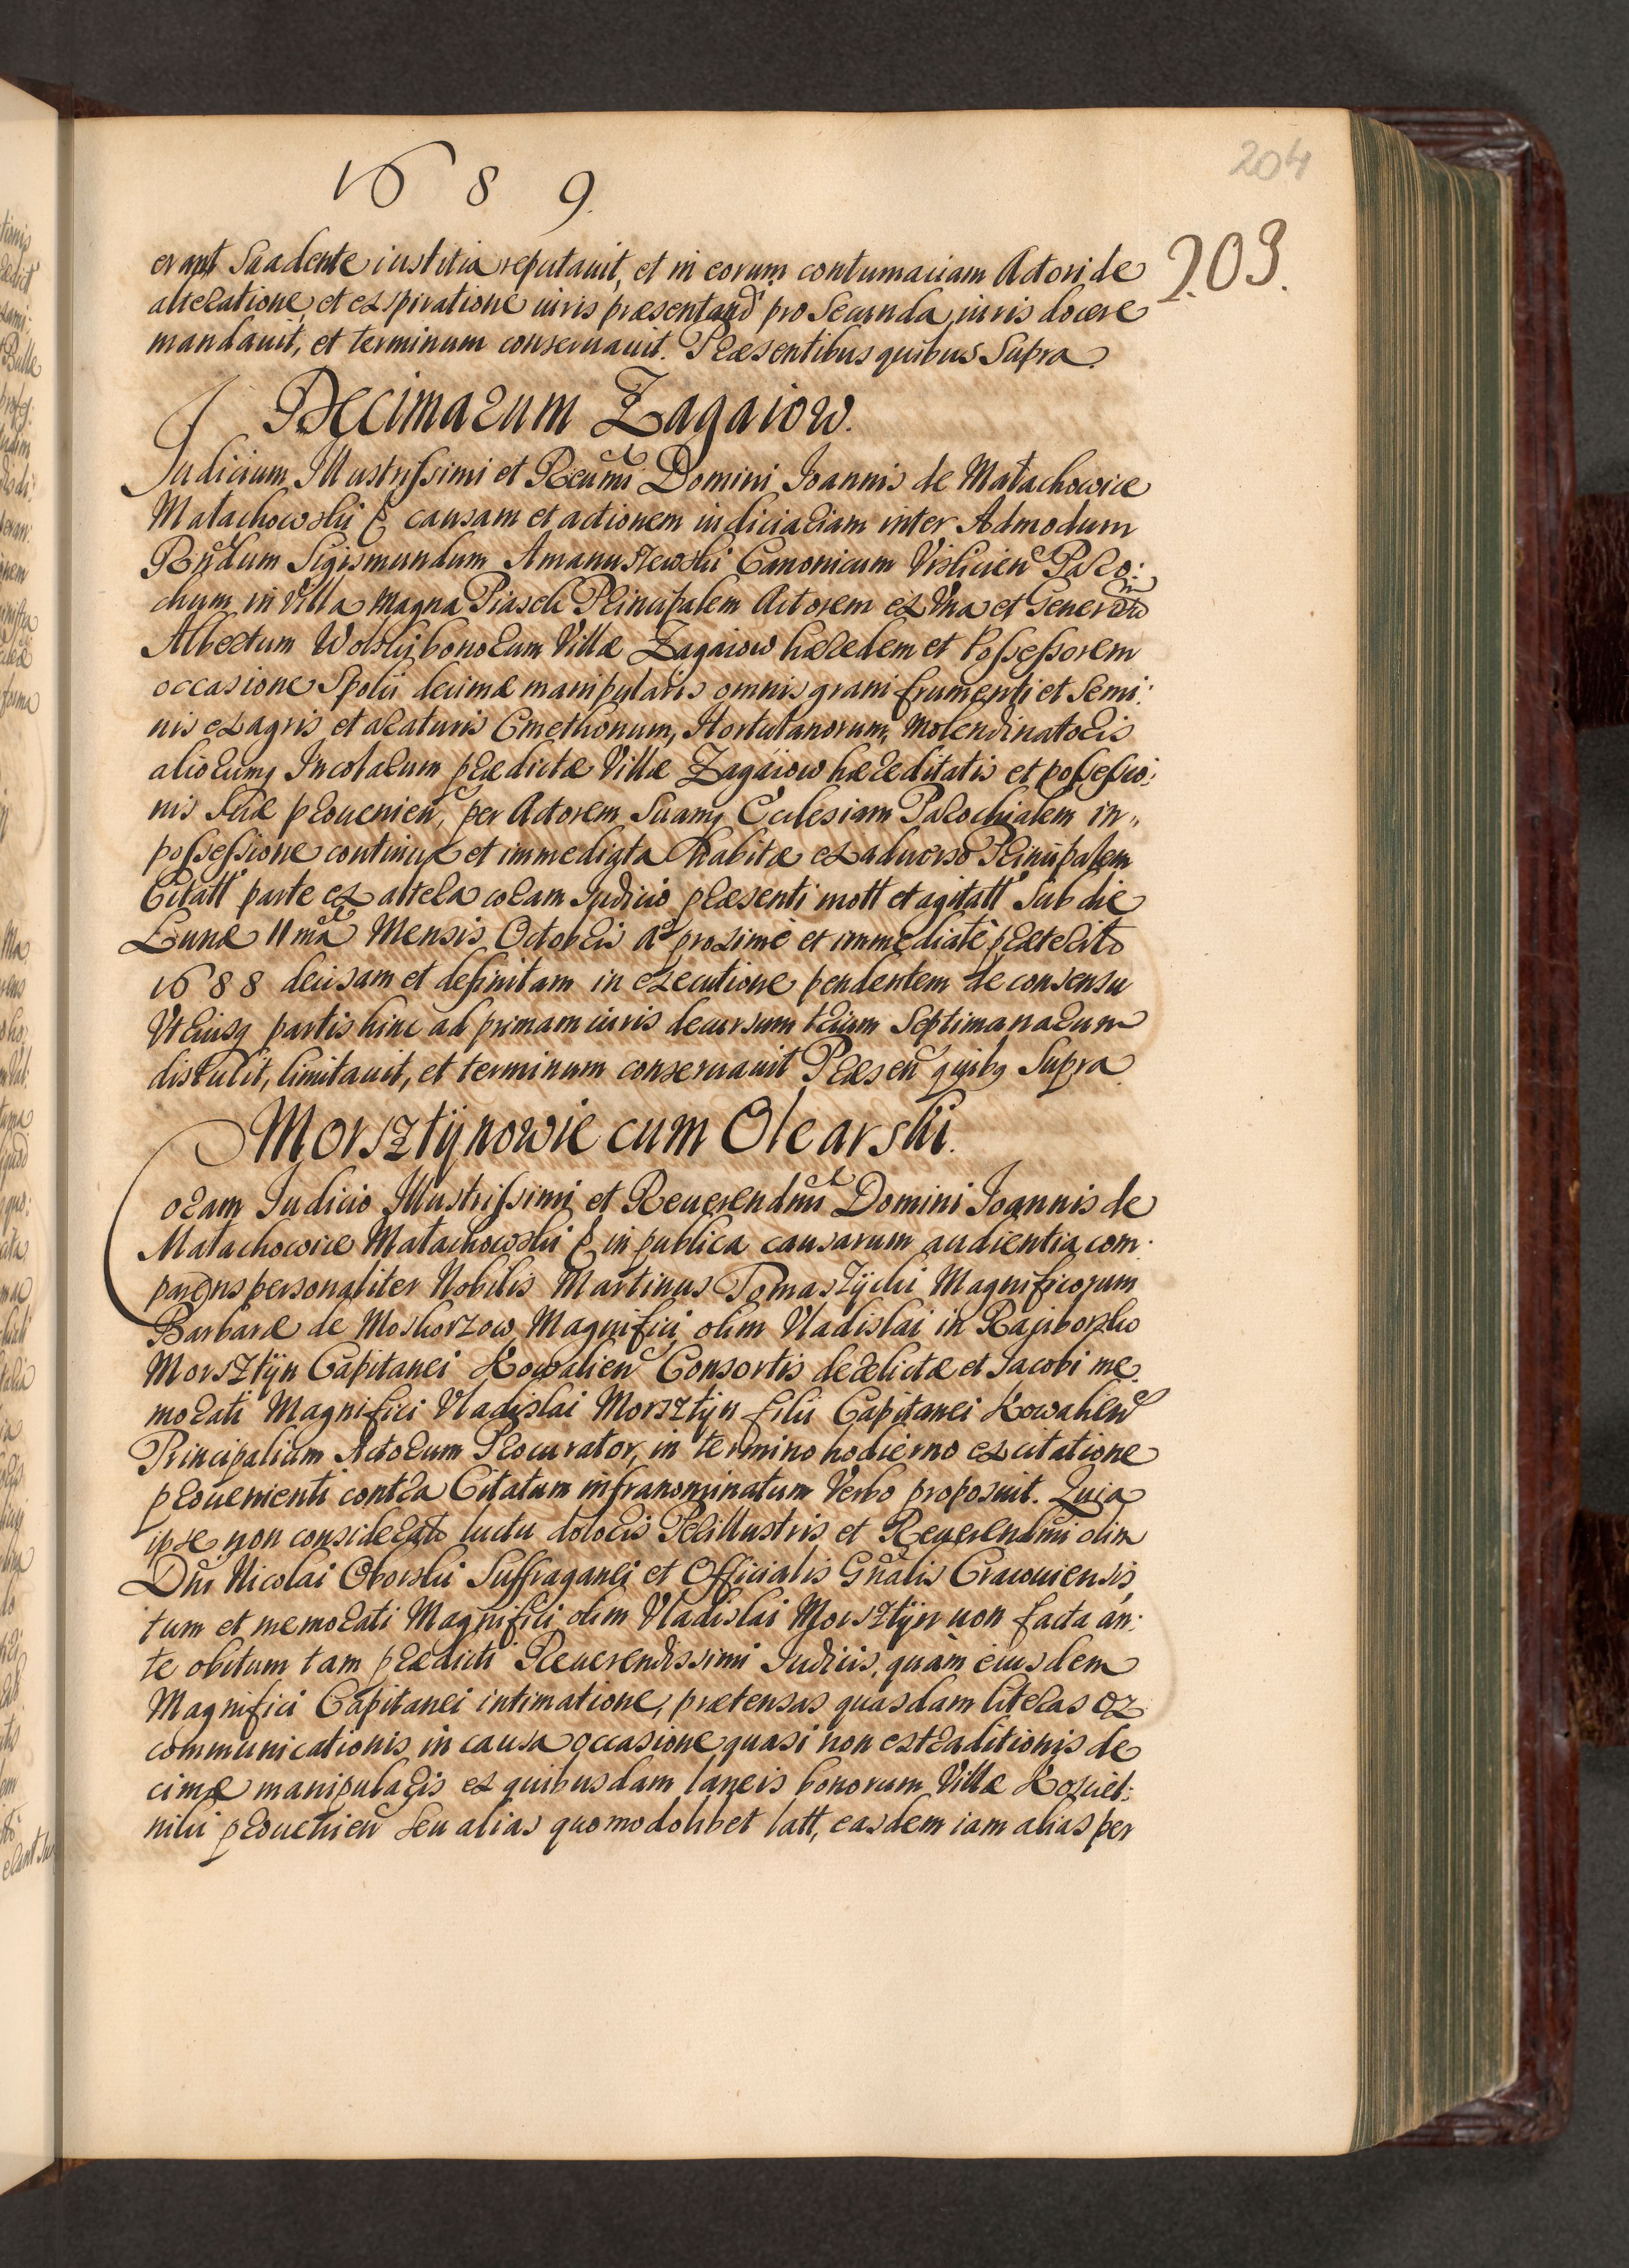 1689.
204
203.
erant suadente iustitia reputauit, et in eorum contumaciam Actori de
alteratione et exspiratione iuris præsentand pro secunda iuris docere
mandauit, et terminum conseruauit. Præsentibus quibus supra.
Decimarum Zagaiow.
Iudicium Illustrissimi et Reuemi Domini Ioannis de Małachowice
Małachowski & causam et actionem iudiciariam inter Admodum
Rndum Sigismundum Amanuszewski Canonicum Vislicien Paro:
chum in Villa Magna Piasek Principalem Actorem ex Vna et Generosum
Albertum Wolski bonorum Villæ Zagaiow hæredem et Possessorem
occasione Spolii decimæ manipularis omnis grani frumenti et Semi:
nis ex agris et araturis Cmethonum, Hortulanorum, Molendinatoris
aliorumq Incolarum prædictæ Villæ Zagaiow hæreditatis et possessio:
nis suæ prouenien, per Actorem Suamq Ecclesiam Parochialem in,,
possessione continua et immediata habitæ ex aduerso Principalem
Citatt parte ex altera coram Iudicio præsenti mott et agitatt sub die
Lunæ 11ma Mensis Octobris Ao proximè et immediatè præterito
1688 decisam et definitam in executione pendentem de consensu
Vtriusq partis hinc ad primam iuris decursum trium Septimanarum
distulit, limitauit, et terminum conseruauit Præsen quibq Supra.
Morsztÿnowie cum Olearski.
Coram Iudicio Illustrissimi et Reuerendmi Domini Ioannis de
Małachowice Małachowski & in publica causarum audientia com:
parens personaliter Nobilis Martinus Tomaszÿcki Magnificorum
Barbaræ de Moskorzow Magnifici olim Vladislai in Raciborsko
Morsztÿn Capitanei Kowalien Consortis derelictæ et Iacobi me
morati Magnifici Vladislai Morsztÿn filii Capitanei Kowalien
Principalium Actorum Procurator, in termino hodierno ex citatione
prouenienti contra Citatum infranominatum Verbo proposuit. Quia
ipse non considerato luctu doloris Perillustris et Reuerendmi olim
Dni Nicolai Oborski Suffraganei et Officialis Gnalis Cracouiensis,
tum et memorati Magnifici olim Vladislai Morsztÿn non facta an:
te obitum tam prædicti Reuerendissimi Iudicis, quàm eiusdem
Magnifici Capitanei intimatione, prætensas quasdam literas ex
communicationis in causa occasione quasi non extraditionis de
cimæ manipularis ex quibusdam laneis bonorum Villæ
nilii prouenien seu alias quomodolibet latt, easdem iam alias per